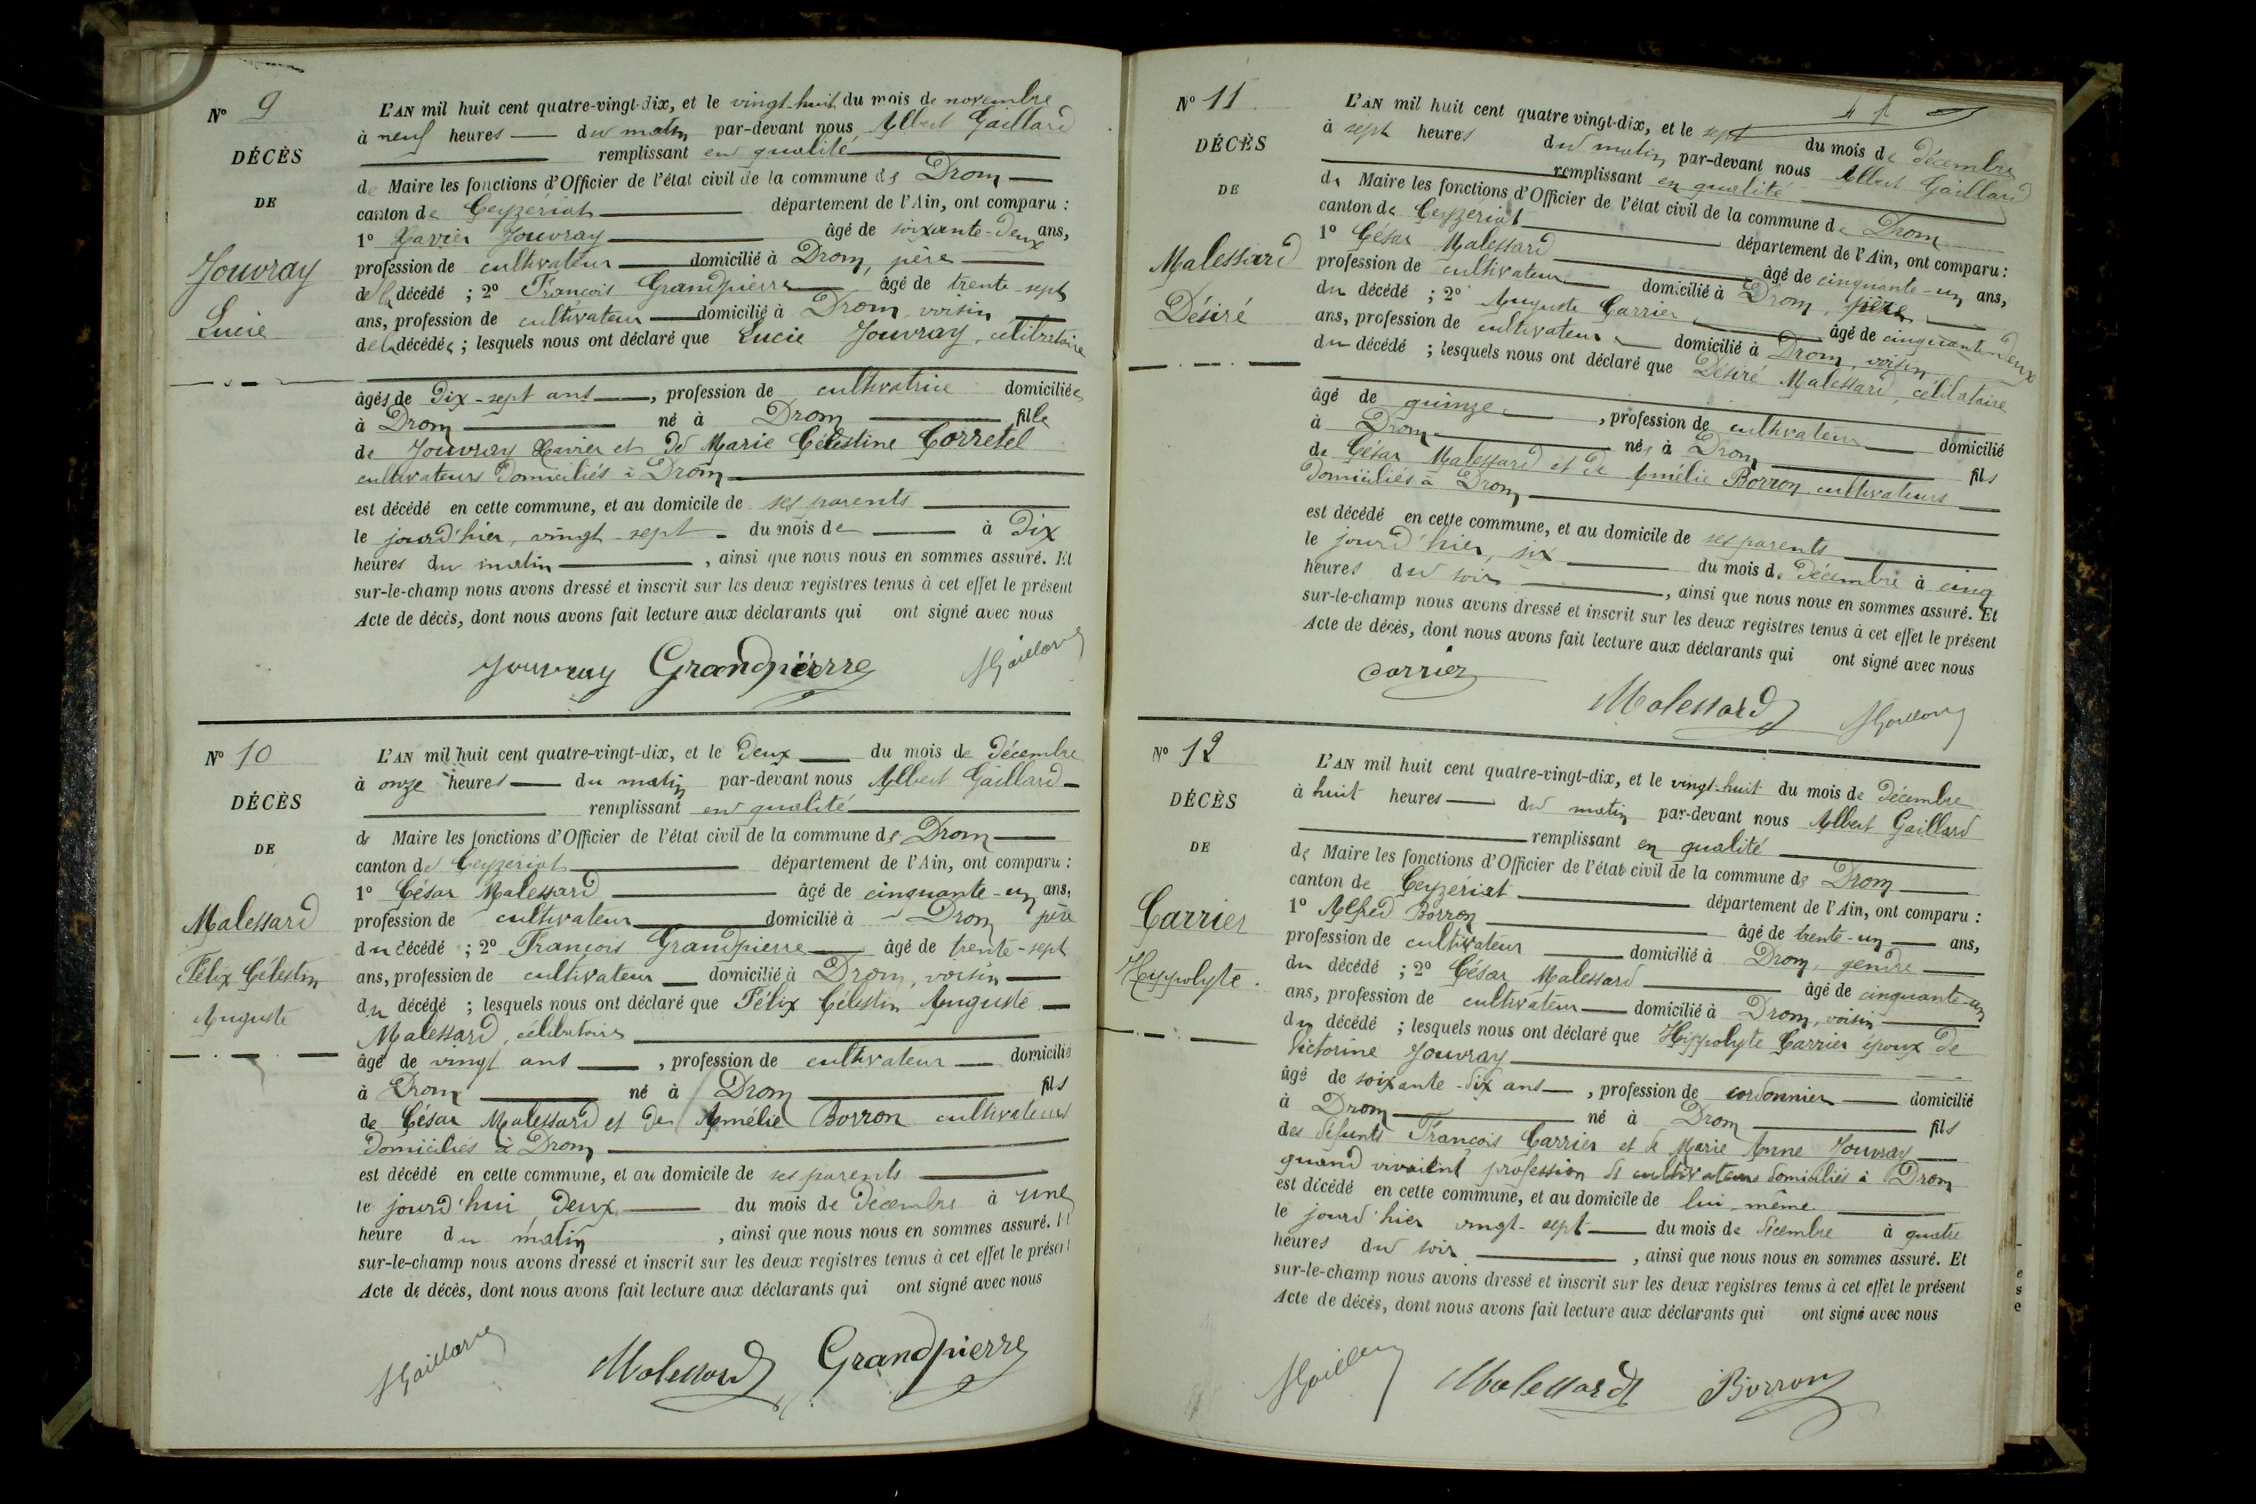 N° 9
DÉCÈS
DE
Jouvray
Lucie
L'AN mil huit cent quatre-vingt-dix, et le vingt-huit du mois de novembre
à neuf heures du matin par-devant nous Albert Gaillard
remplissant en qualité
de Maire les fonctions d'Officier de l'état civil de la commune de Drom
canton de Ceyzériat département de l'Ain, ont comparu :
1° Xavier Jouvray âgé de soixante-deux ans,
profession de cultivateur domicilié à Drom, père
de la décédé ; 2° François Grandpierre âgé de trente-sept
ans, profession de cultivateur domicilié à Drom, voisin
de la décédée ; lesquels nous ont déclaré que Lucie Jouvray, célibataire
âgés de dix-sept ans, profession de cultivatrice domiciliée
à Drom né à Drom fille
de Jouvray Xavier et de Marie Célestine Corretel
cultivateurs domiciliés à Drom
est décédé en cette commune, et au domicile de ses parents
le jourd'hier, vingt-sept du mois de à dix
heures du matin, ainsi que nous nous en sommes assuré. Et
sur-le-champ nous avons dressé et inscrit sur les deux registres tenus à cet effet le présent
Acte de décès, dont nous avons fait lecture aux déclarants qui ont signé avec nous
Jouvray Grandpierre AGaillard
N° 10
DÉCÈS
DE
Malessard
Félix Célestin
Auguste
L'AN mil huit cent quatre-vingt-dix, et le deux du mois de décembre
à onze heures du matin par-devant nous Albert Gaillard
remplissant en qualité
de Maire les fonctions d'Officier de l'état civil de la commune de Drom
canton de Ceyzériat département de l'Ain, ont comparu :
1° César Malessard âgé de cinquante-un ans,
profession de cultivateur domicilié à Drom père
du décédé ; 2° François Grandpierre âgé de trente-sept
ans, profession de cultivateur domicilié à Drom, voisin
du décédé ; lesquels nous ont déclaré que Félix Célestin Auguste
Malessard, célibataire
âgé de vingt ans, profession de cultivateur domicilié
à Drom né à Drom fils
de César Malessard et de Amélie Borron cultivateurs
domiciliés à Drom
est décédé en cette commune, et au domicile de ses parents
le jourd'hui deux du mois de décembre à une
heure du matin, ainsi que nous nous en sommes assuré. Et
sur-le-champ nous avons dressé et inscrit sur les deux registres tenus à cet effet le présent
Acte de décès, dont nous avons fait lecture aux déclarants qui ont signé avec nous
AGaillard Malessard Grandpierre
N° 11
DÉCÈS
DE
Malessard
Désiré
L'AN mil huit cent quatre vingt-dix, et le sept du mois de décembre
à sept heures du matin par-devant nous Albert Gaillard
remplissant en qualité
de Maire les fonctions d'Officier de l'état civil de la commune de Drom
canton de Ceyzériat département de l'Ain, ont comparu :
1° César Malessard âgé de cinquante-un ans,
profession de cultivateur domicilié à Drom, père
du décédé ; 2° Auguste Carrier âgé de cinquante-deux
ans, profession de cultivateur domicilié à Drom, voisin
du décédé ; lesquels nous ont déclaré que Désiré Malessard, célibataire
âgé de quinze, profession de cultivateur domicilié
à Drom né à Drom fils
de César Malessard et de Amélie Borron cultivateurs
domiciliés à Drom
est décédé en cette commune, et au domicile de ses parents
le jourd'hier, six du mois de décembre à cinq
heures du soir, ainsi que nous nous en sommes assuré. Et
sur-le-champ nous avons dressé et inscrit sur les deux registres tenus à cet effet le présent
Acte de décès, dont nous avons fait lecture aux déclarants qui ont signé avec nous
Carrier Malessard AGaillard
N° 12
DÉCÈS
DE
Carrier
Hippolyte.
L'AN mil huit cent quatre-vingt-dix, et le vingt-huit du mois de décembre
à huit heures du matin par-devant nous Albert Gaillard
remplissant en qualité
de Maire les fonctions d'Officier de l'état civil de la commune de Drom
canton de Ceyzériat département de l'Ain, ont comparu :
1° Alfred Borron âgé de trente-un ans,
profession de cultivateur domicilié à Drom, gendre
du décédé ; 2° César Malessard âgé de cinquante-un
ans, profession de cultivateur domicilié à Drom, voisin
du décédé ; lesquels nous ont déclaré que Hippolyte Carrier époux de
Victorine Jouvray
âgé de soixante-dix ans, profession de cordonnier domicilié
à Drom né à Drom fils
des défunts François Carrier et de Marie Anne Jouvray
quand vivaient profession de cultivateurs domiciliés à Drom
est décédé en cette commune, et au domicile de lui-même
le jourd'hier vingt-sept du mois de décembre à quatre
heures du soir, ainsi que nous nous en sommes assuré. Et
sur-le-champ nous avons dressé et inscrit sur les deux registres tenus à cet effet le présent
Acte de décès, dont nous avons fait lecture aux déclarants qui ont signé avec nous
AGaillard Malessard Borron